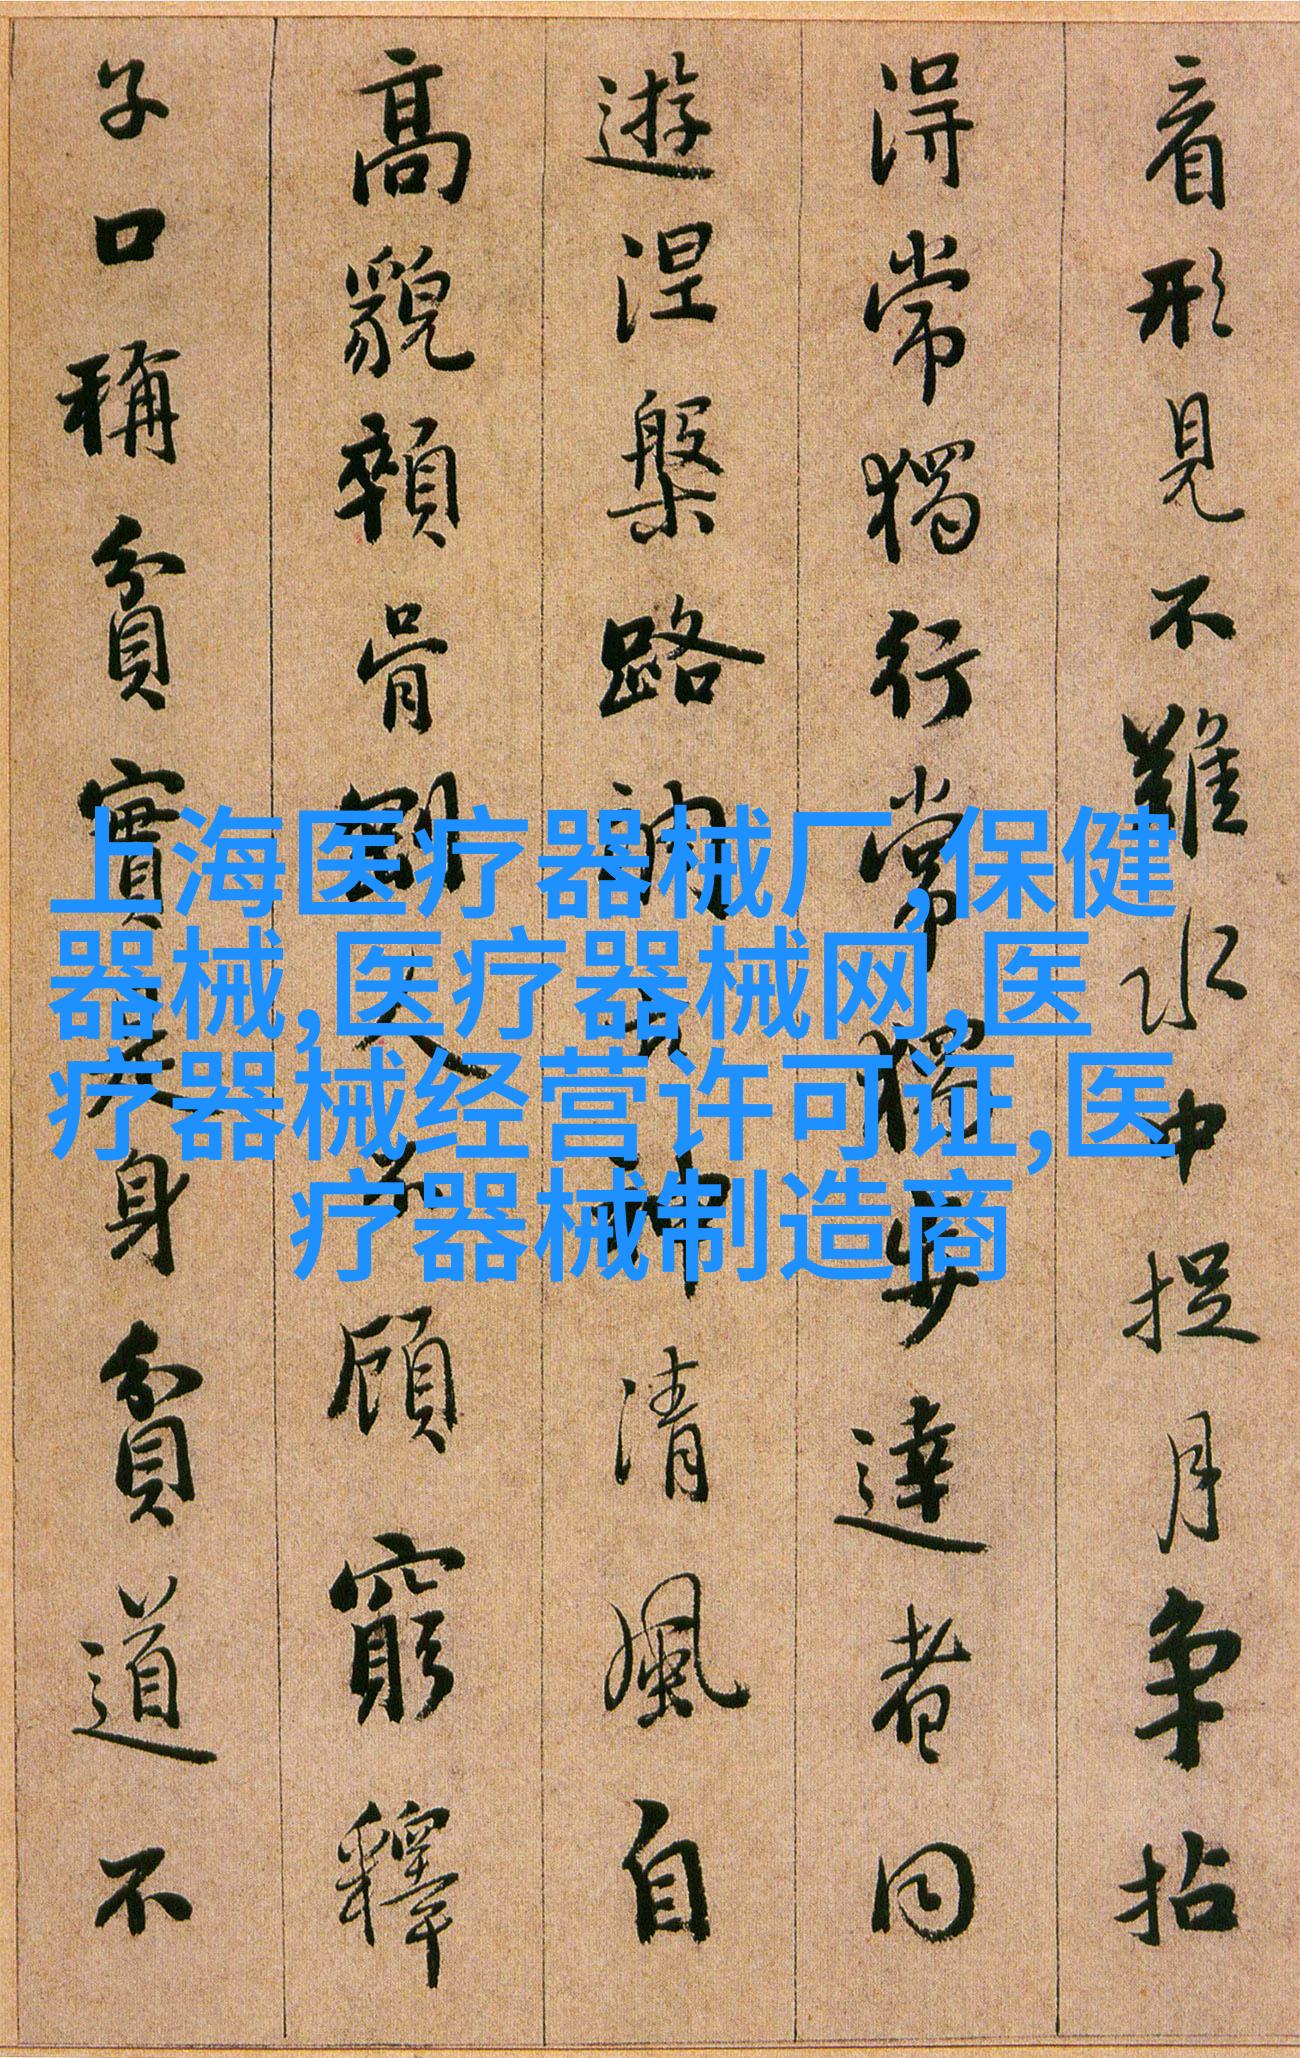 看形見不難水中捉月争拈
得常獨行常獨步達者同
遊涅槃路神清風自
高貌顇骨剛人顧窮釋
子口稱貧實是身貧道不
上海医疗器械厂,保健
器械,医疗器械网,医
疗器械经营许可证,医
疗器械制造商